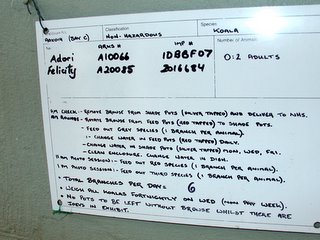 Classification
Species
(BAY C)
NON-HAZARDOUS
KOALA
No.
ARKS #
IMP #
Number of Animals
Adori A10066 1DBBF07
Felicity A20085 2016684
0:2 ADULTS
AM CHECK:- REMOVE BROWSE FROM SHADE POTS (SILVER TAPPED) AND DELIVER TO NHS.
AM ROUNDS:- ROTATE BROWSE FROM FEED POTS (RED TAPPED) TO SHADE POTS.
- FEED OUT GREY SPECIES (1 BRANCH PER ANIMAL).
- CHANGE WATER IN FEED POTS (RED TAPPED) DAILY.
- CHANGE WATER IN SHADE POTS (SILVER TAPPED) MON, WED, FRI.
- CLEAN ENCLOSURE, CHANGE WATER IN DISH.
11 AM PHOTO SESSION:- FEED OUT RED SPECIES (1 BRANCH PER ANIMAL).
1 PM PHOTO SESSION:- FEED OUT THIRD SPECIES (1 BRANCH PER ANIMAL).
* TOTAL BRANCHES PER DAY: 6
* WEIGH ALL KOALAS FORTNIGHTLY ON WED (NON PAY WEEK).
* NO POTS TO BE LEFT WITHOUT BROWSE WHILST THERE ARE
JOEYS IN EXHIBIT.